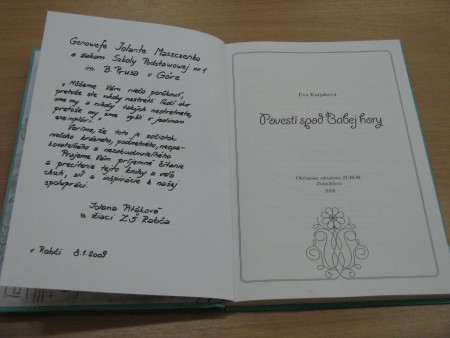 Genowefe Jolante Maszczenko
a žiakom Szkoly Podstawowej nr 1
im. B. Prusa v Górе
"Môžeme Vám niečo ponúknuť,
pretože ste nikdy nestretli ľudí ako
sme my a nikdy takých nestretnete,
pretože my sme vyšli v jedinom
exemplári."
Veríme, že toto je začiatok
niečoho krásneho, podnetného, neopa-
kovateľného a nezabudnuteľného.
Prajeme Vám príjemné čítanie
a prečítanie tejto knihy a veľa
chuti, síl a inšpirácie k našej
spolupráci.
Jolana Pitáková
a žiaci ZŠ Rabča
v Rabči 8.1.2009
Eva Kurjaková
Povesti spod Babej hory
Občianske združenie ZUBOR
Zubrohlava
2008